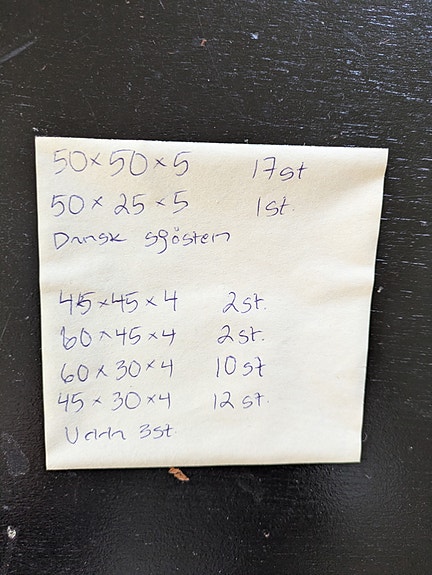 50 x 50 x 5 17st
50 x 25 x 5 1st.
Dansk sjösten
45 x 45 x 4 2st.
60 x 45 x 4 2st.
60 x 30 x 4 10st
45 x 30 x 4 12st.
Udda 3st